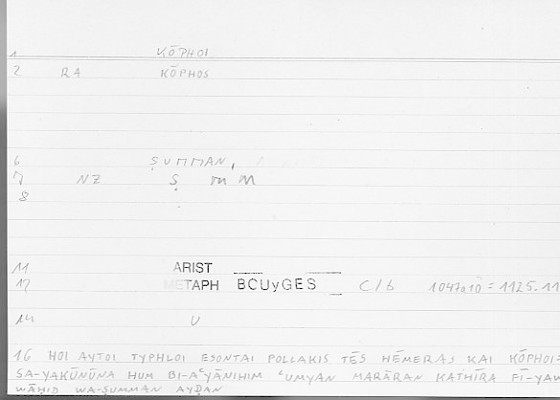 1 KŌPHOI
2 RA KŌPHOS
6 ṢUMMAN,
7 NZ Ṣ m M
8
11 ARIST
12 METAPH BCUyGES C/b 1047a10 = 1125.11
14 U
16 HOI AYTOI TYPHLOI ESONTAI POLLAKIS TĒS HĒMERAS KAI KŌPHOI=
SA-YAKŪNŪNA HUM BI-AʿYĀNIHIM ʿUMYAN MARĀRAN KATHĪRA FĪ-YAW
WĀḤID WA-ṢUMMAN AYḌAN